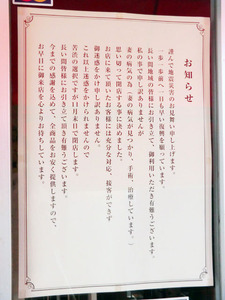 お知らせ
謹んで地震災害のお見舞い申し上げます。
一歩一歩前へ一日も早い復興を願っています。
長い間地域の皆様にお引き立て、御利用いただき有難うございます。
私の事で申し訳ありませんが
妻の病気の為(妻の病気が見つかり、手術、治療しています。)
思い切って閉店する事に決めました。
お店に来て頂いたお客様には充分な対応、接客ができず
御迷惑をかけ申し訳ありません。
これ以上迷惑をかけられませんので
苦渋の選択ですが11月末日で閉店します。
長い間皆様にお引き立て頂き有難うございます。
今までの感謝を込めて、全商品をお安く提供しますので、
お早目に御来店を心よりお待ちしています。